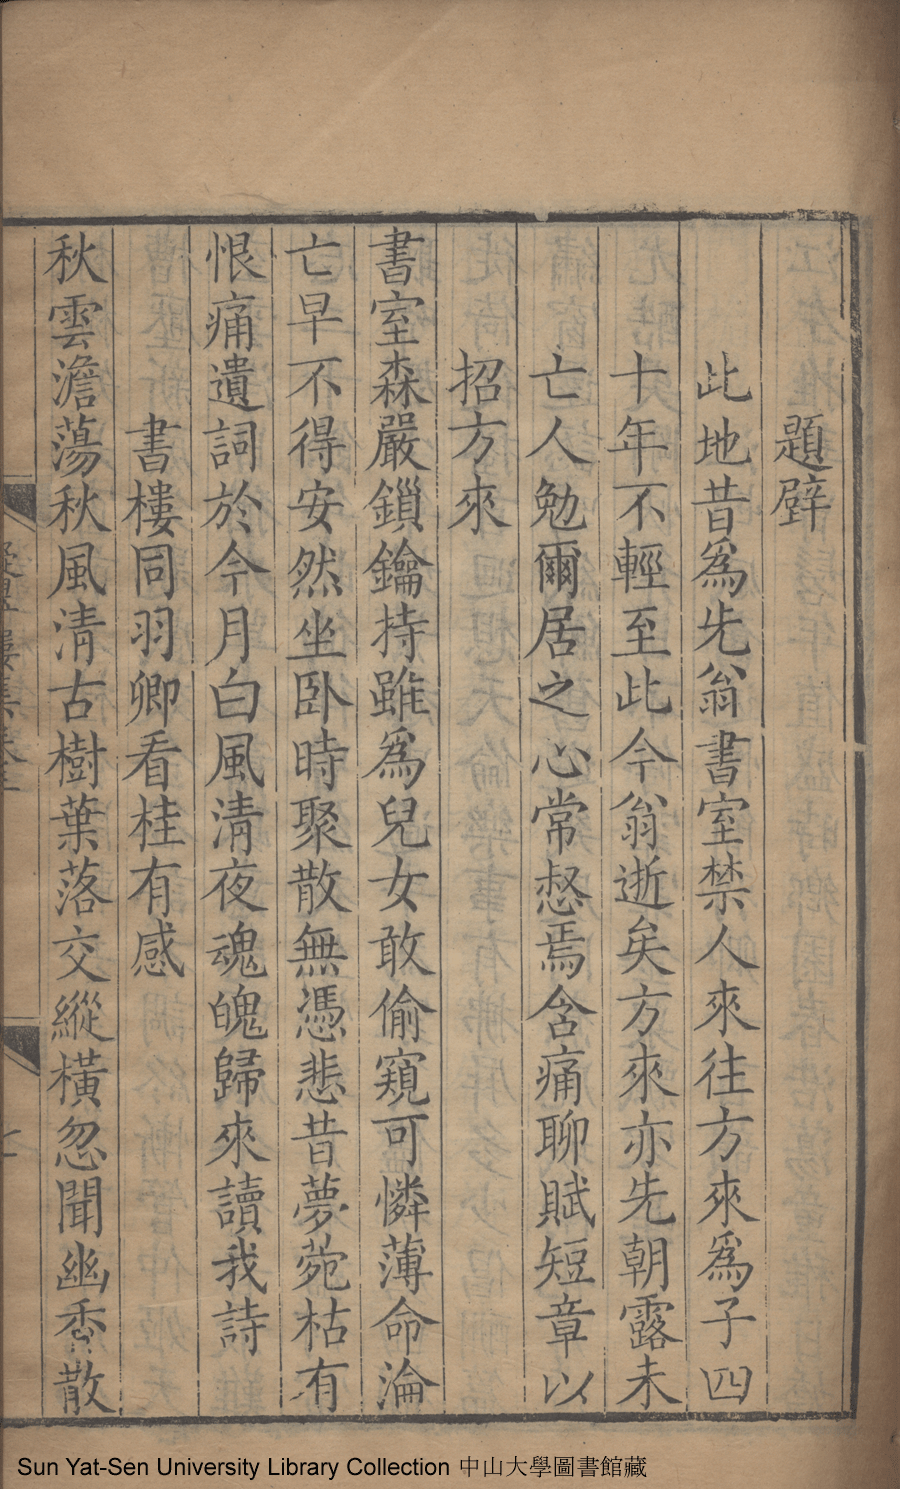 題辟
此地昔爲先翁書室禁人來往方來爲子四
十年不輕至此今翁逝矣方來亦先朝露未
亡人勉爾居之心常惄焉含痛聊賦短章以
招方來
書室森嚴鎖鑰持雖爲兒女敢偷窺可憐薄命淪
亡早不得安然坐卧時聚散無憑悲昔夢菀枯有
恨痛遺詞於今月白風清夜魂魄歸來讀我詩
書樓同羽卿看桂有感
秋雲澹蕩秋風清古樹葉落交縱橫忽聞幽香散
Sun Yat-Sen University Library Collection 中山大學圖書館藏